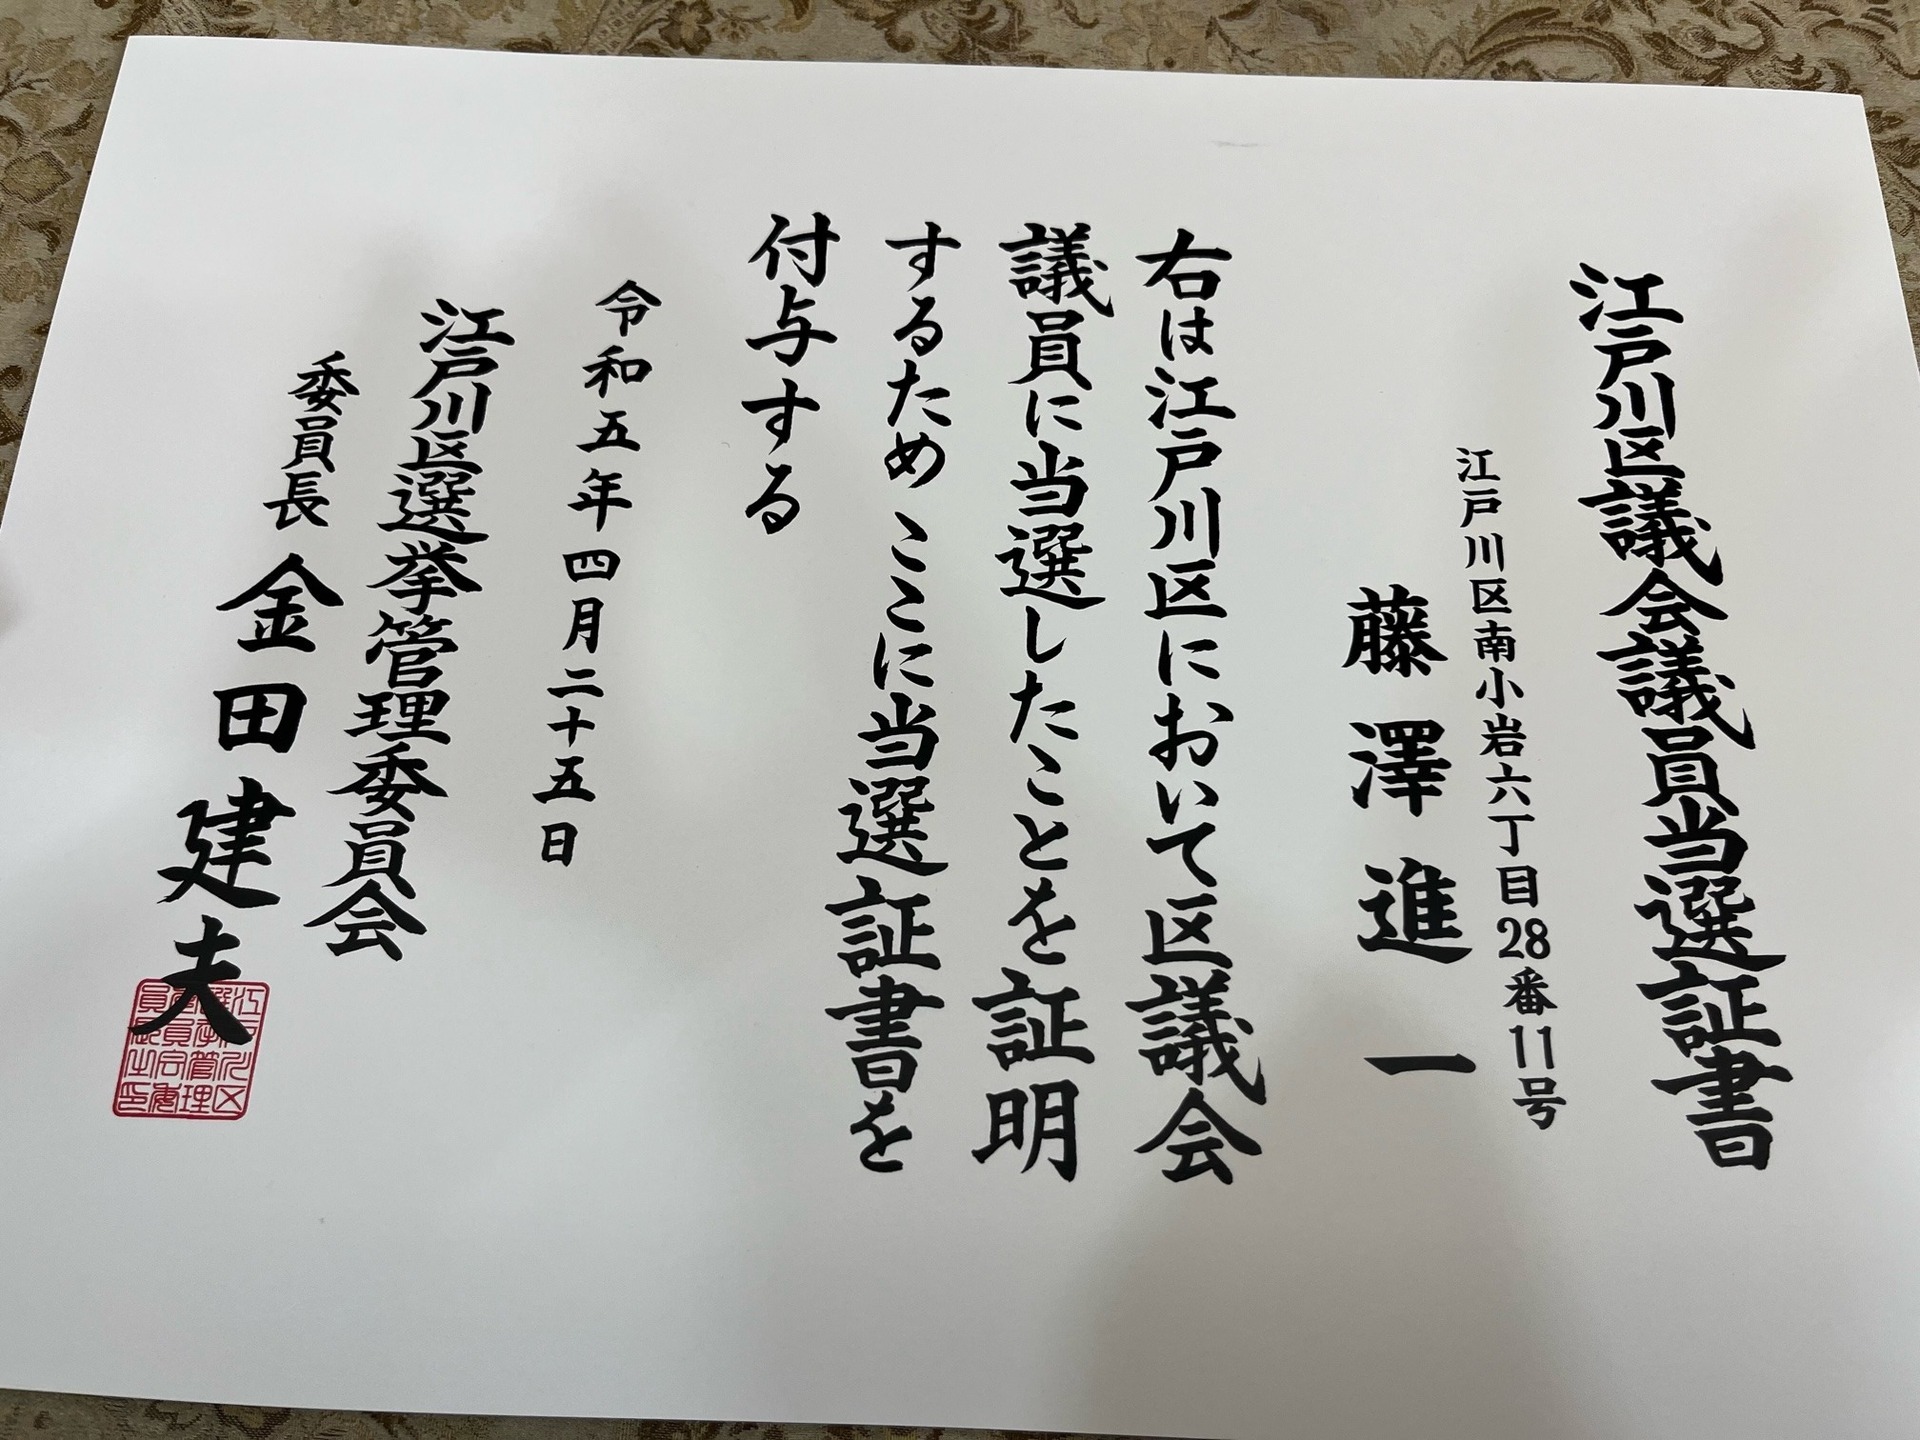 江戸川区議会議員当選証書
江戸川区南小岩六丁目28番11号
藤澤進一
右は江戸川区において区議会
議員に当選したことを証明
するため ここに当選証書を
付与する
令和五年四月二十五日
江戸川区選挙管理委員会
委員長 金田建夫
江戸川区
選挙管理
委員会委
員長之印